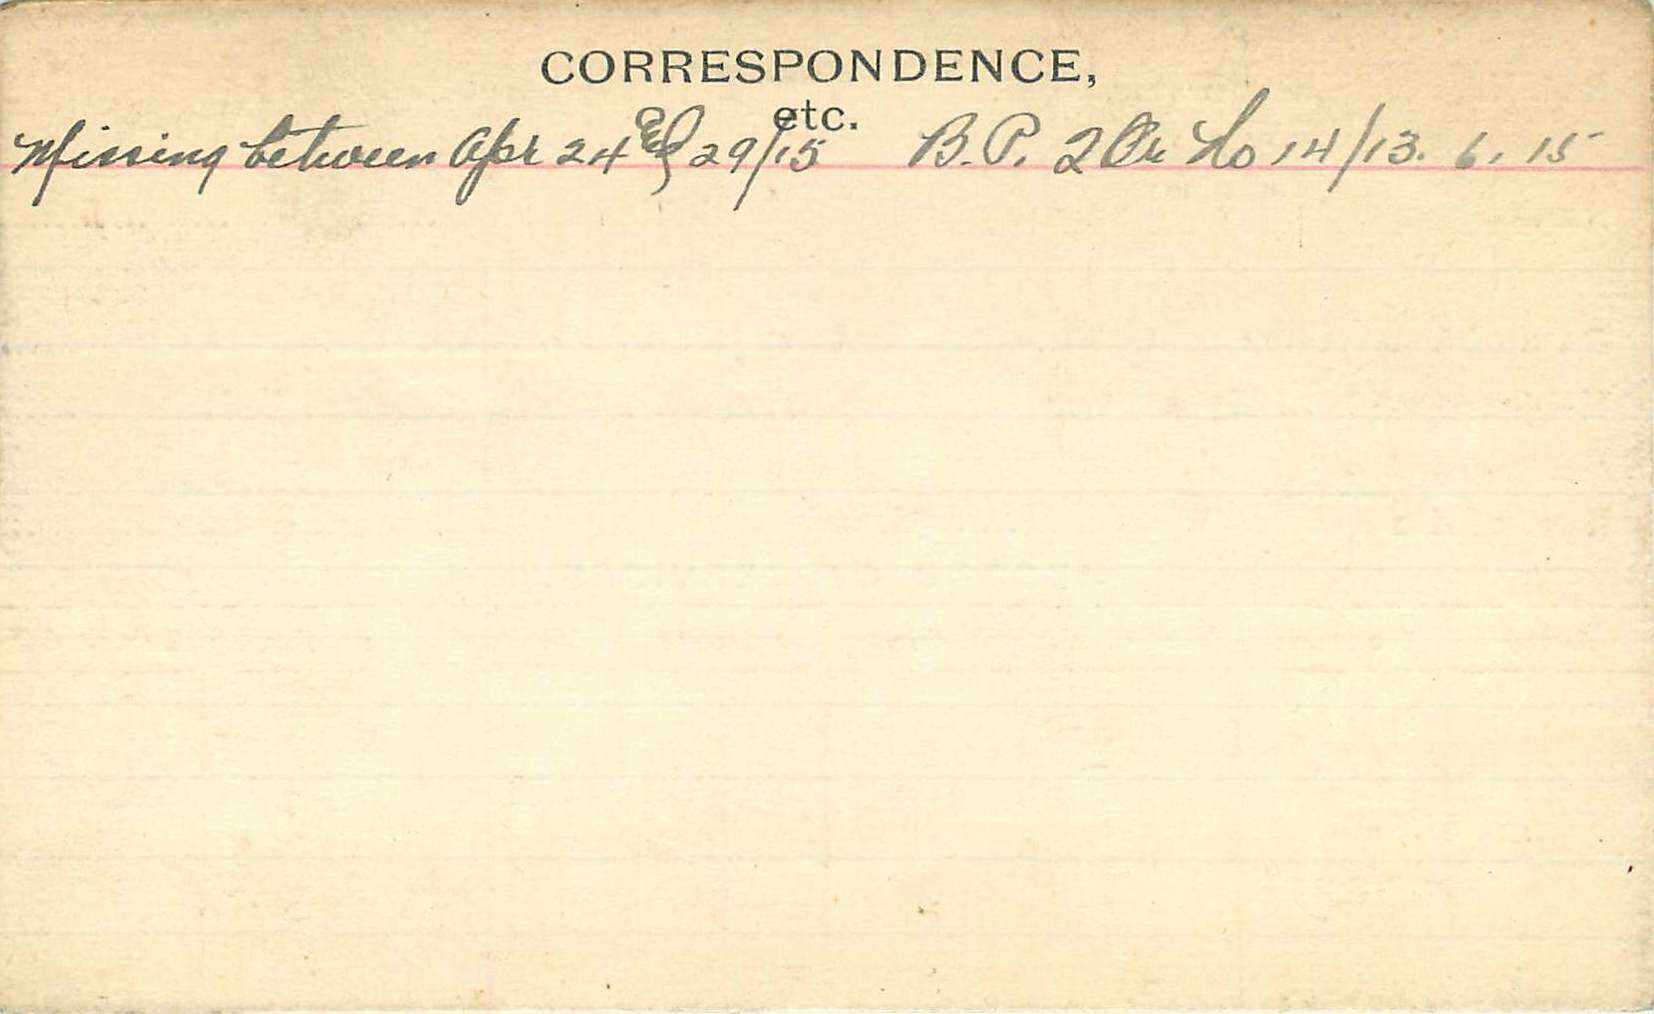 CORRESPONDENCE,
etc.
Missing between Apr 24 & 29/15 B.P. 2 Or No 14/13. 6. 15